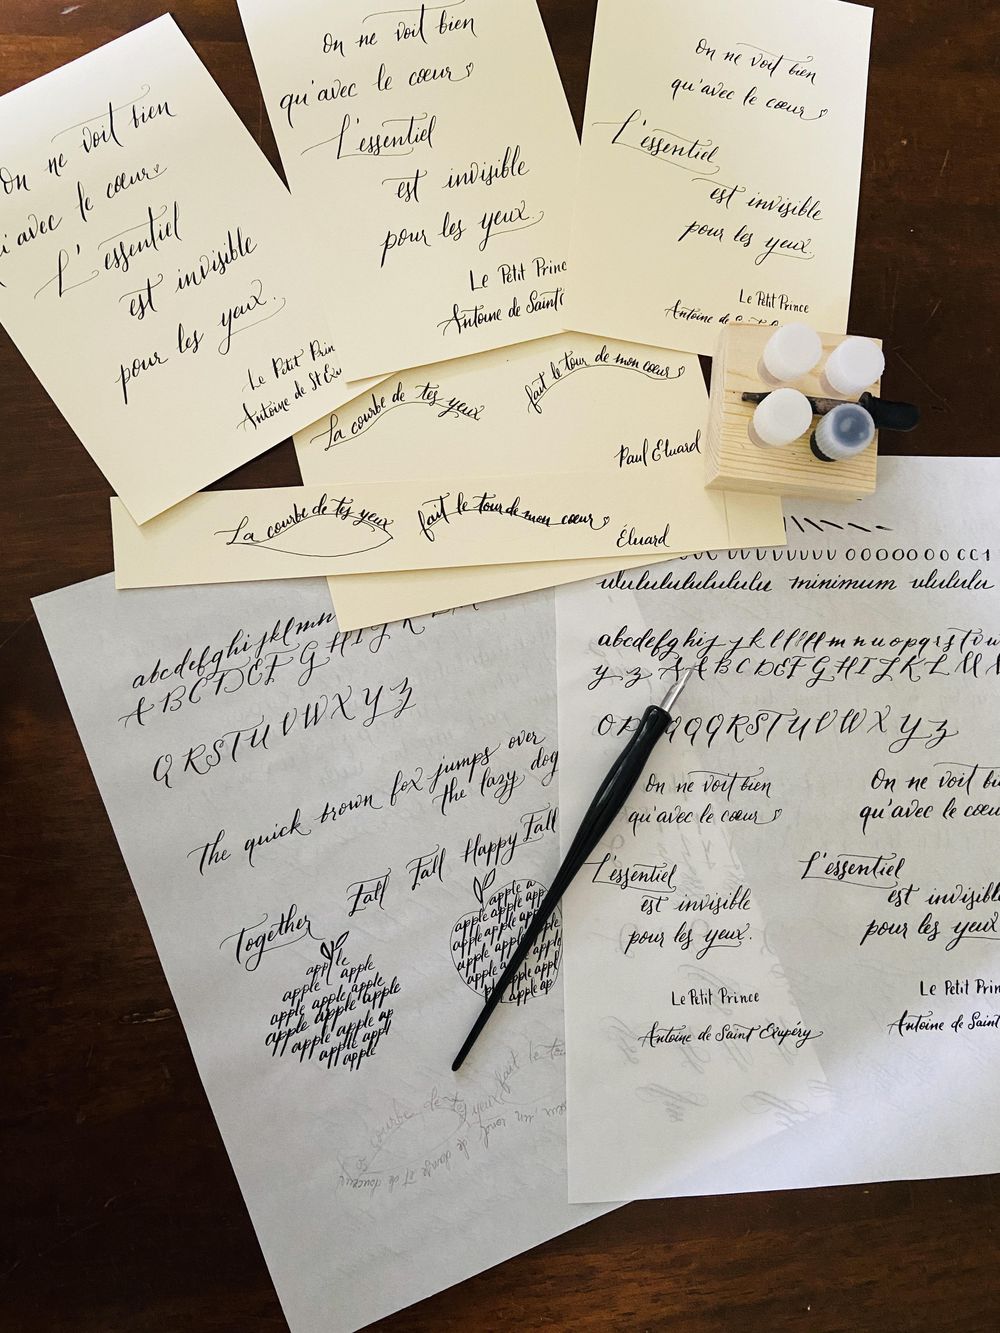 On ne voit bien
avec le cœur
L'essentiel
est invisible
pour les yeux.
Le Petit Prin
Antoine de St Exu
On ne voit bien
qu'avec le cœur
L'essentiel
est invisible
pour les yeux.
Le Petit Prince
Antoine de Saint
On ne voit bien
qu'avec le cœur
L'essentiel
est invisible
pour les yeux.
Le Petit Prince
Antoine de
La courbe de tes yeux
fait le tour de mon cœur
Paul Eluard
La courbe de tes yeux fait le tour de mon cœur
Éluard
abcdefghijklmn
ABCDEFGHIJK
QRSTUVWXYZ
the quick brown fox jumps over
the lazy dog
Together Fall Fall Happy Fall
apple
apple apple
apple apple apple
apple apple apple
apple apple ap
apple apple
apple
apple a
apple apple app
apple apple apple
apple apple apple
apple apple
apple ap
courbe de
yeux fait le
de danse et de douceur
ululululululululu minimum ulululu
abcdefghij jkllllmnuopqrstuw
yz AABCDEFGHIJKLM
OPQQQRSTUVWXYZ
On ne voit bien
qu'avec le cœur
L'essentiel
est invisible
pour les yeux.
Le Petit Prince
Antoine de Saint Exupéry
On ne voit bi
qu'avec le cœu
L'essentiel
est invisible
pour les yeux
Le Petit Prin
Antoine de Saint